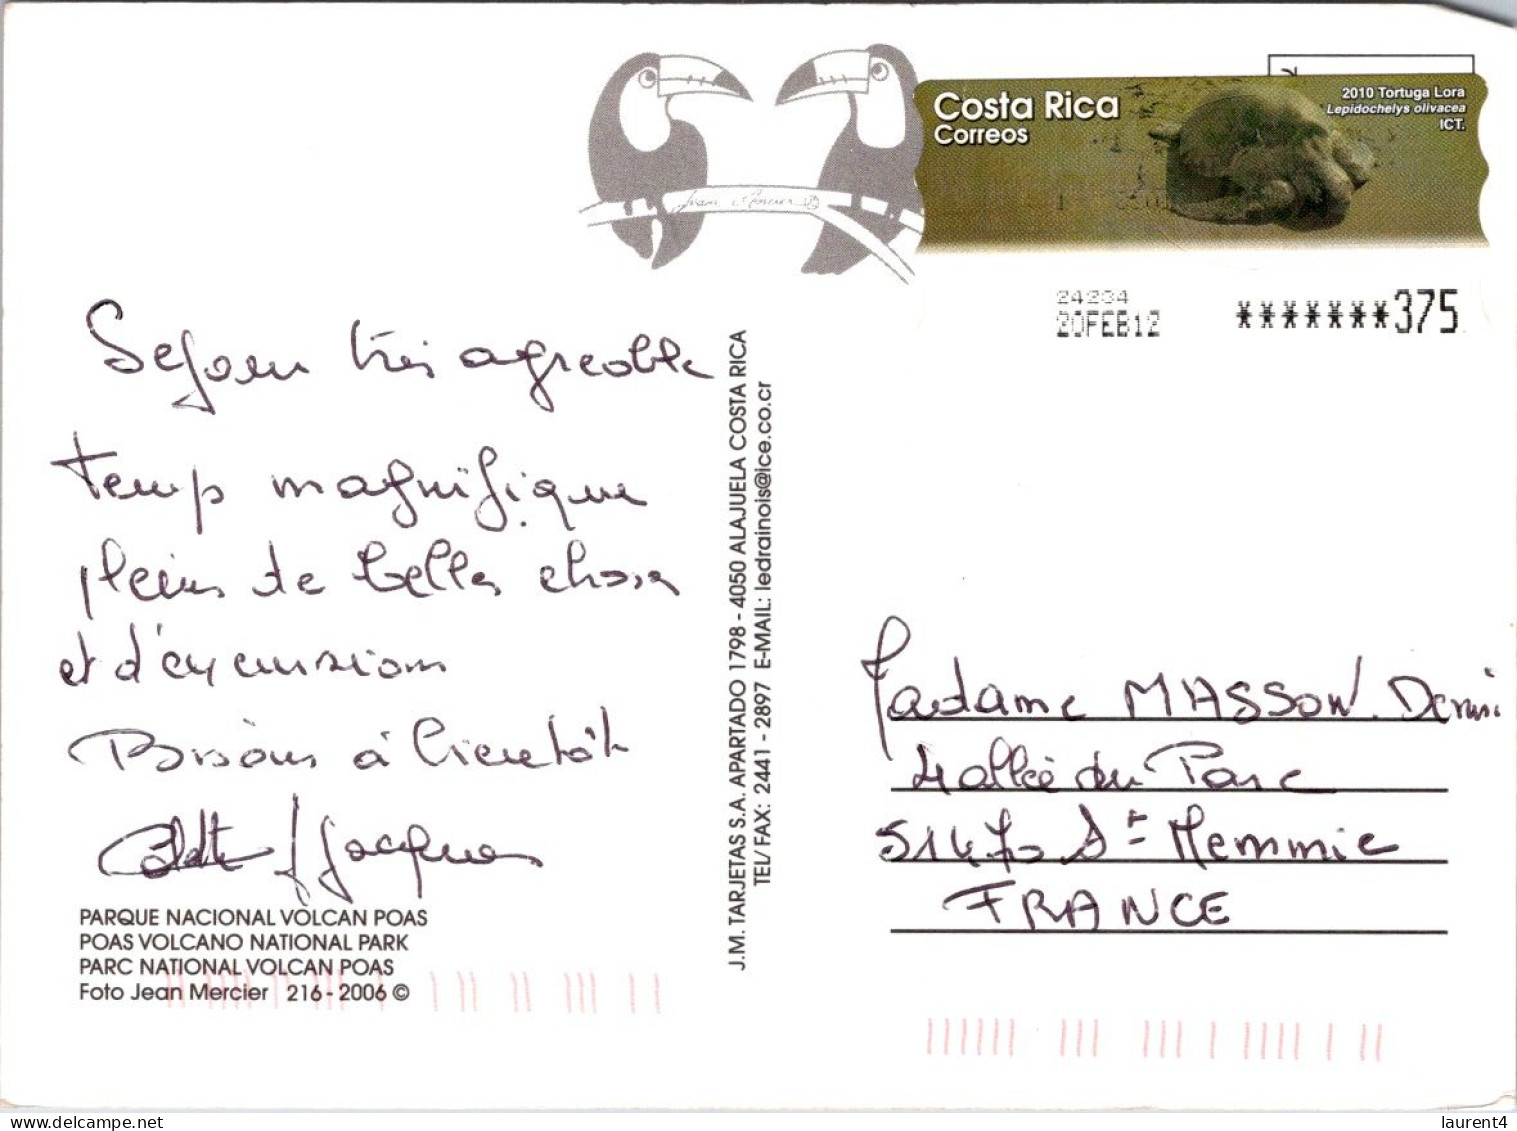 Costa Rica
Correos
2010 Tortuga Lora
Lepidochelys olivacea
ICT.
Jean Mercier
24204
20FEB12
*******375
Sejour très agreable
temps magnifique
pleins de belles choses
et d'excursions
Bisous à bientôt
Jacques
PARQUE NACIONAL VOLCAN POAS
POAS VOLCANO NATIONAL PARK
PARC NATIONAL VOLCAN POAS
Foto Jean Mercier 216 - 2006 ©
J.M. TARJETAS S.A. APARTADO 1798 - 4050 ALAJUELA COSTA RICA
TEL/ FAX: 2441 - 2897 E-MAIL: ledrainois@ice.co.cr
Madame MASSON Denise
4 allée du Parc
51470 St Memmie
FRANCE
laurent4